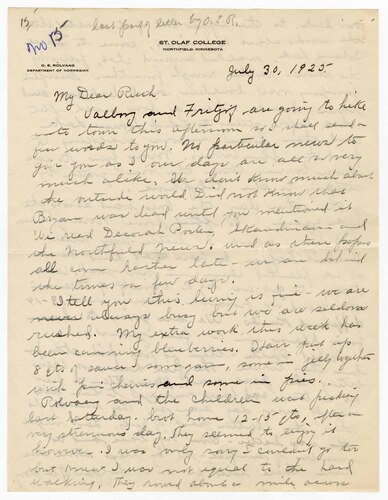 15
last part of letter by O. E. R.
no 15
ST. OLAF COLLEGE
NORTHFIELD, MINNESOTA
O. E. ROLVAAG
DEPARTMENT OF NORWEGIAN
July 30, 1925
My Dear
Valborg and are going to hike
into town this afternoon so I shall send a
few words to you. No particular news to
give you as our days are all so very
much alike. We dont know much about
the outside world. Did not know that
Bryan was dead until you mentioned it
We read Decorah Posten, Skandinaven and
the Northfield News, and as these papers
all come rather late we are behind
the times a few days.
I tell you this living is fine - we are
never always busy but we are seldom
rushed. My extra work this week has
been canning blueberries. Have put up
8 qts of sauce some jam, some in jelly together
with pin cherries and some in pies.
Rolvaag and the children went picking
last Saturday. brot home 12-15 qts, after a
very strenuous day. They seemed to enjoy it
however. I was only sorry I couldn't go too
but I was not equal to the hard
walking. They rowed about a mile across